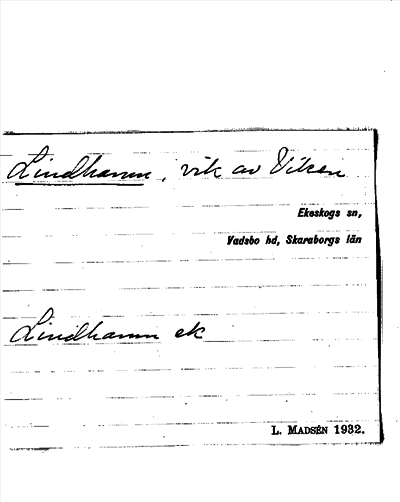 Lindhamn, vik av Viken
Ekeskogs sn,
Vadsbo hd, Skaraborgs län
Lindhamn ek
L. MADSÉN 1932.